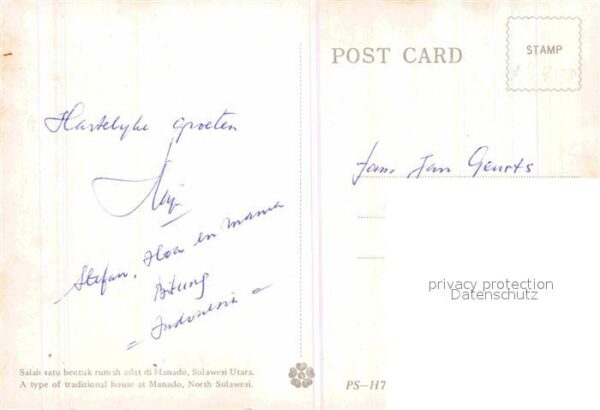 Hartelyke groeten
Stefan, Hoa en mama
Bitung
= Indonesia =
Salah satu bentuk rumah adat di Manado, Sulawesi Utara.
A type of traditional house at Manado, North Sulawesi.
POST CARD
STAMP
Fam. Jan Geurts
privacy protection
Datenschutz
PS-H7